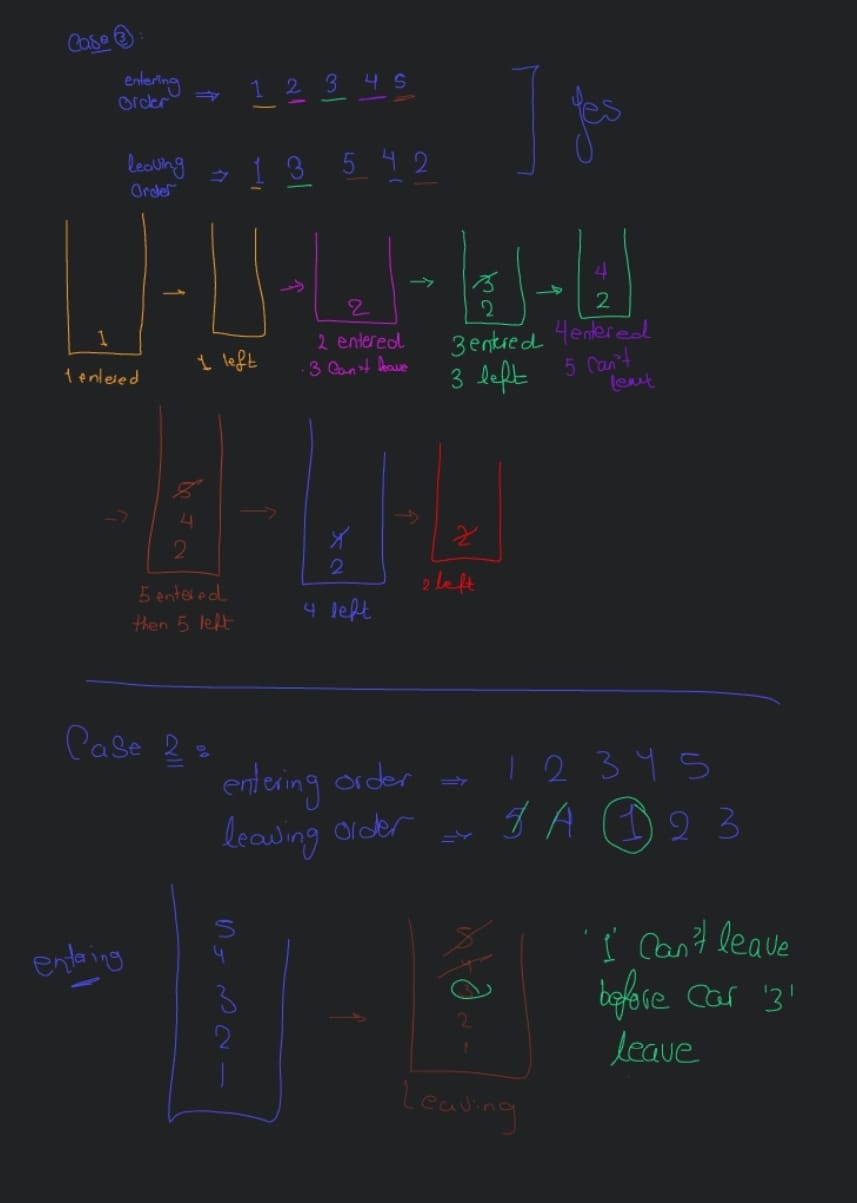 Case ③:
entering
order ⇒ 1 2 3 4 5
Yes
leaving
order ⇒ 1 3 5 4 2
1
1 entered
→
1 left
→
2
2 entered
3 Can't leave
→
3
2
3 entered
3 left
→
4
2
4 entered
5 Can't
→
5
4
2
5 entered
then 5 left
→
4
2
4 left
→
2
2 left
Case 2:
entering order ⇒ 1 2 3 4 5
leaving order ⇒ 5 4 1 2 3
entering
5
4
3
2
1
→
5
4
3
2
1
Leaving
'1' Can't leave
before Car '3'
leave